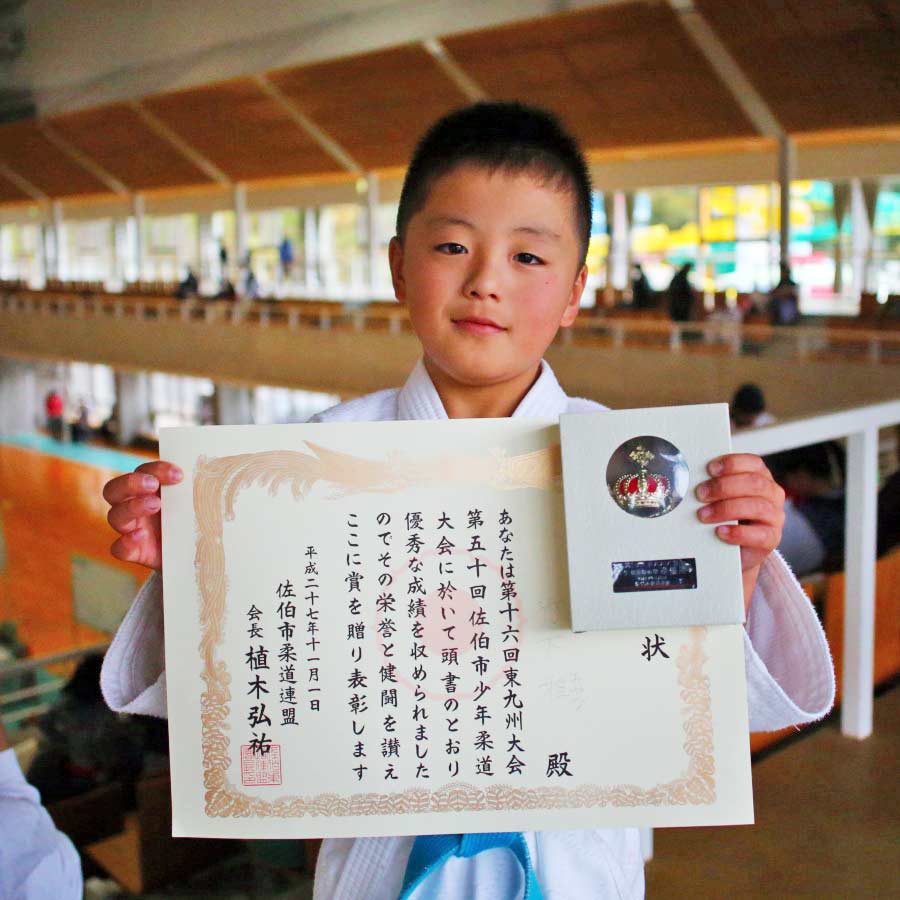 状
殿
あなたは第十六回東九州大会
第五十回佐伯市少年柔道
大会に於いて頭書のとおり
優秀な成績を収められました
のでその栄誉と健闘を讃え
ここに賞を贈り表彰します
平成二十七年十一月一日
佐伯市柔道連盟
会長 植木弘祐